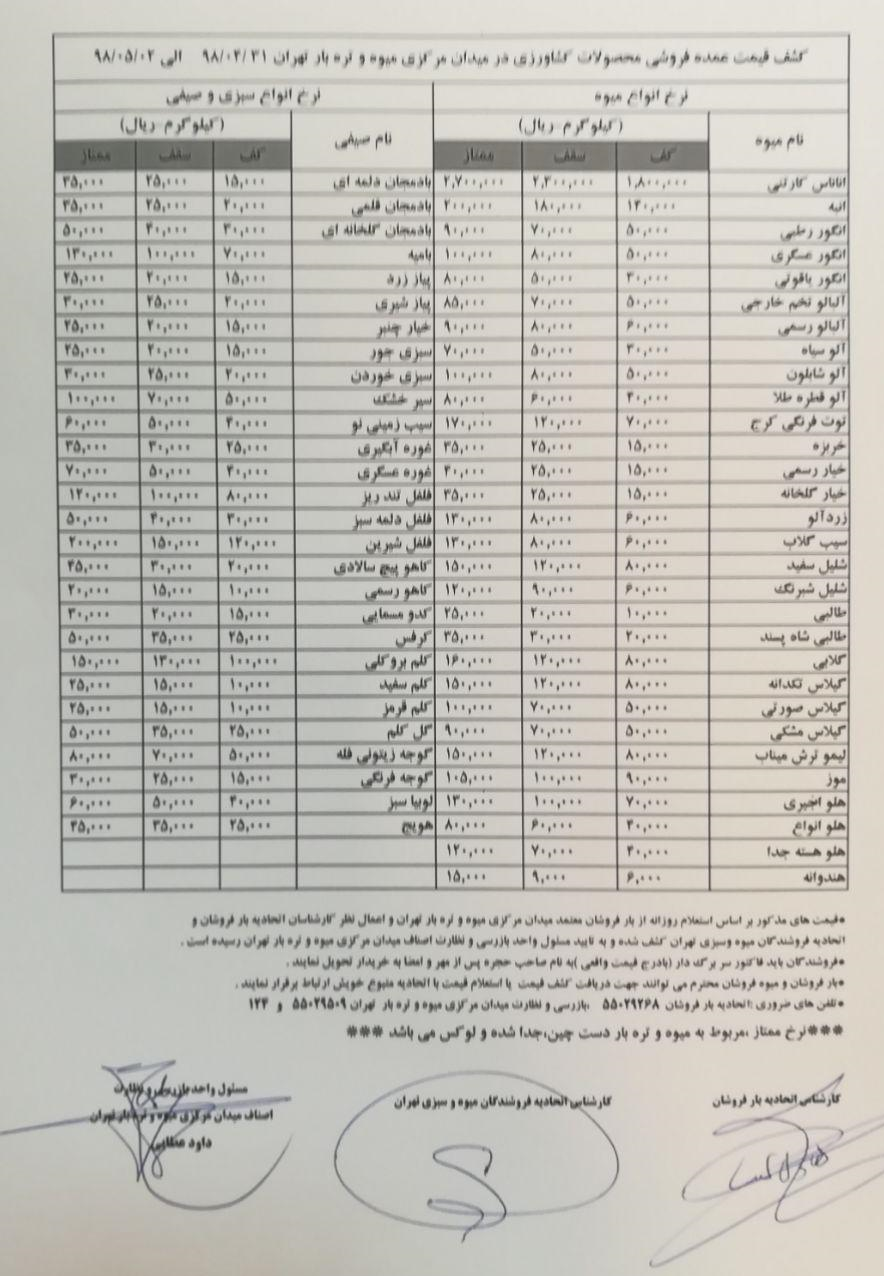 کشف قیمت عمده فروشی محصولات کشاورزی در میدان مرکزی میوه و تره بار تهران ۹۸/۰۴/۳۱ الی ۹۸/۰۵/۰۲
نرخ انواع میوه نرخ انواع سبزی و صیفی
نام میوه (کیلوگرم ریال) نام صیفی (کیلوگرم ریال)
کف سقف ممتاز کف سقف ممتاز
اناناس کارتنی ۱,۸۰۰,۰۰۰ ۲,۳۰۰,۰۰۰ ۲,۷۰۰,۰۰۰ بادمجان دلمه ای ۱۵,۰۰۰ ۲۵,۰۰۰ ۳۵,۰۰۰
انبه ۱۴۰,۰۰۰ ۱۸۰,۰۰۰ ۲۰۰,۰۰۰ بادمجان قلمی ۲۰,۰۰۰ ۲۵,۰۰۰ ۳۵,۰۰۰
انگور رطبی ۵۰,۰۰۰ ۷۰,۰۰۰ ۹۰,۰۰۰ بادمجان گلخانه ای ۳۰,۰۰۰ ۴۰,۰۰۰ ۵۰,۰۰۰
انگور عسگری ۵۰,۰۰۰ ۸۰,۰۰۰ ۱۰۰,۰۰۰ بامیه ۷۰,۰۰۰ ۱۰۰,۰۰۰ ۱۳۰,۰۰۰
انگور یاقوتی ۳۰,۰۰۰ ۵۰,۰۰۰ ۸۰,۰۰۰ پیاز زرد ۱۵,۰۰۰ ۲۰,۰۰۰ ۲۵,۰۰۰
آلبالو تخم خارجی ۵۰,۰۰۰ ۷۰,۰۰۰ ۸۵,۰۰۰ پیاز شیری ۲۰,۰۰۰ ۲۵,۰۰۰ ۳۰,۰۰۰
آلبالو رسمی ۶۰,۰۰۰ ۸۰,۰۰۰ ۹۰,۰۰۰ خیار چنبر ۱۵,۰۰۰ ۲۰,۰۰۰ ۲۵,۰۰۰
آلو سیاه ۳۰,۰۰۰ ۵۰,۰۰۰ ۷۰,۰۰۰ سبزی جور ۱۵,۰۰۰ ۲۰,۰۰۰ ۲۵,۰۰۰
آلو شابلون ۵۰,۰۰۰ ۸۰,۰۰۰ ۱۰۰,۰۰۰ سبزی خوردن ۲۰,۰۰۰ ۲۵,۰۰۰ ۳۰,۰۰۰
آلو قطره طلا ۴۰,۰۰۰ ۶۰,۰۰۰ ۸۰,۰۰۰ سیر خشک ۵۰,۰۰۰ ۷۰,۰۰۰ ۱۰۰,۰۰۰
توت فرنگی کرج ۷۰,۰۰۰ ۱۲۰,۰۰۰ ۱۷۰,۰۰۰ سیب زمینی نو ۴۰,۰۰۰ ۵۰,۰۰۰ ۶۰,۰۰۰
خربزه ۱۵,۰۰۰ ۲۵,۰۰۰ ۳۵,۰۰۰ غوره آبگیری ۲۵,۰۰۰ ۳۰,۰۰۰ ۳۵,۰۰۰
خیار رسمی ۱۵,۰۰۰ ۲۵,۰۰۰ ۴۰,۰۰۰ غوره عسگری ۴۰,۰۰۰ ۵۰,۰۰۰ ۷۰,۰۰۰
خیار گلخانه ۱۵,۰۰۰ ۲۵,۰۰۰ ۳۵,۰۰۰ فلفل تند ریز ۸۰,۰۰۰ ۱۰۰,۰۰۰ ۱۲۰,۰۰۰
زردآلو ۶۰,۰۰۰ ۸۰,۰۰۰ ۱۳۰,۰۰۰ فلفل دلمه سبز ۳۰,۰۰۰ ۴۰,۰۰۰ ۵۰,۰۰۰
سیب گلاب ۶۰,۰۰۰ ۸۰,۰۰۰ ۱۳۰,۰۰۰ فلفل شیرین ۱۲۰,۰۰۰ ۱۵۰,۰۰۰ ۲۰۰,۰۰۰
شلیل سفید ۸۰,۰۰۰ ۱۲۰,۰۰۰ ۱۵۰,۰۰۰ کاهو پیچ سالادی ۲۰,۰۰۰ ۳۰,۰۰۰ ۴۵,۰۰۰
شلیل شبرنگ ۶۰,۰۰۰ ۹۰,۰۰۰ ۱۲۰,۰۰۰ کاهو رسمی ۱۰,۰۰۰ ۱۵,۰۰۰ ۲۰,۰۰۰
طالبی ۱۰,۰۰۰ ۲۰,۰۰۰ ۲۵,۰۰۰ کدو مسمایی ۱۵,۰۰۰ ۲۰,۰۰۰ ۳۰,۰۰۰
طالبی شاه پسند ۲۰,۰۰۰ ۳۰,۰۰۰ ۳۵,۰۰۰ کرفس ۲۵,۰۰۰ ۳۵,۰۰۰ ۵۰,۰۰۰
گلابی ۸۰,۰۰۰ ۱۲۰,۰۰۰ ۱۶۰,۰۰۰ کلم بروکلی ۱۰۰,۰۰۰ ۱۳۰,۰۰۰ ۱۵۰,۰۰۰
گیلاس تکدانه ۸۰,۰۰۰ ۱۲۰,۰۰۰ ۱۵۰,۰۰۰ کلم سفید ۱۰,۰۰۰ ۱۵,۰۰۰ ۲۵,۰۰۰
گیلاس صورتی ۵۰,۰۰۰ ۷۰,۰۰۰ ۱۰۰,۰۰۰ کلم قرمز ۱۰,۰۰۰ ۱۵,۰۰۰ ۲۵,۰۰۰
گیلاس مشکی ۵۰,۰۰۰ ۷۰,۰۰۰ ۹۰,۰۰۰ گل کلم ۲۵,۰۰۰ ۳۵,۰۰۰ ۵۰,۰۰۰
لیمو ترش میناب ۸۰,۰۰۰ ۱۲۰,۰۰۰ ۱۵۰,۰۰۰ گوجه زیتونی فله ۵۰,۰۰۰ ۷۰,۰۰۰ ۸۰,۰۰۰
موز ۹۰,۰۰۰ ۱۰۰,۰۰۰ ۱۰۵,۰۰۰ گوجه فرنگی ۱۵,۰۰۰ ۲۵,۰۰۰ ۳۰,۰۰۰
هلو انجیری ۷۰,۰۰۰ ۱۰۰,۰۰۰ ۱۳۰,۰۰۰ لوبیا سبز ۴۰,۰۰۰ ۵۰,۰۰۰ ۶۰,۰۰۰
هلو انواع ۴۰,۰۰۰ ۶۰,۰۰۰ ۸۰,۰۰۰ هویج ۲۵,۰۰۰ ۳۵,۰۰۰ ۴۵,۰۰۰
هلو هسته جدا ۴۰,۰۰۰ ۷۰,۰۰۰ ۱۲۰,۰۰۰
هندوانه ۶,۰۰۰ ۹,۰۰۰ ۱۵,۰۰۰
*قیمت های مذکور بر اساس استعلام روزانه از بار فروشان معتمد میدان مرکزی میوه و تره بار تهران و اعمال نظر کارشناسان اتحادیه بار فروشان و
اتحادیه فروشندگان میوه وسبزی تهران کشف شده و به تایید مسئول واحد بازرسی و نظارت اصناف میدان مرکزی میوه و تره بار تهران رسیده است .
*فروشندگان باید فاکتور سر برگ دار (بادرج قیمت واقعی )به نام صاحب حجره پس از مهر و امضا به خریدار تحویل نمایند .
*بار فروشان و میوه فروشان محترم می توانند جهت دریافت کشف قیمت یا استعلام قیمت با اتحادیه متبوع خویش ارتباط برقرار نمایند .
*تلفن های ضروری :اتحادیه بار فروشان ۵۵۰۲۹۲۶۸ ،بازرسی و نظارت میدان مرکزی میوه و تره بار تهران ۵۵۰۲۹۵۰۹ و ۱۲۴
***نرخ ممتاز ،مربوط به میوه و تره بار دست چین،جدا شده و لوکس می باشد ***
کارشناس اتحادیه بار فروشان
کارشناس اتحادیه فروشندگان میوه و سبزی تهران
مسئول واحد بازرسی و نظارت
اصناف میدان مرکزی میوه و تره بار تهران
داود عطایی